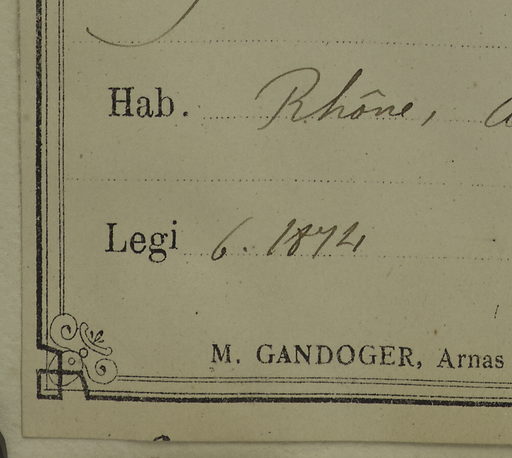 Hab. Rhône,
Legi 6. 1874
M. GANDOGER, Arnas